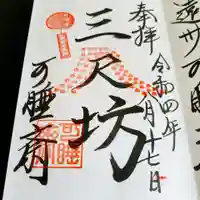 奉拝
令和四年
月十七日
三尺坊
可睡斎
遠州可睡